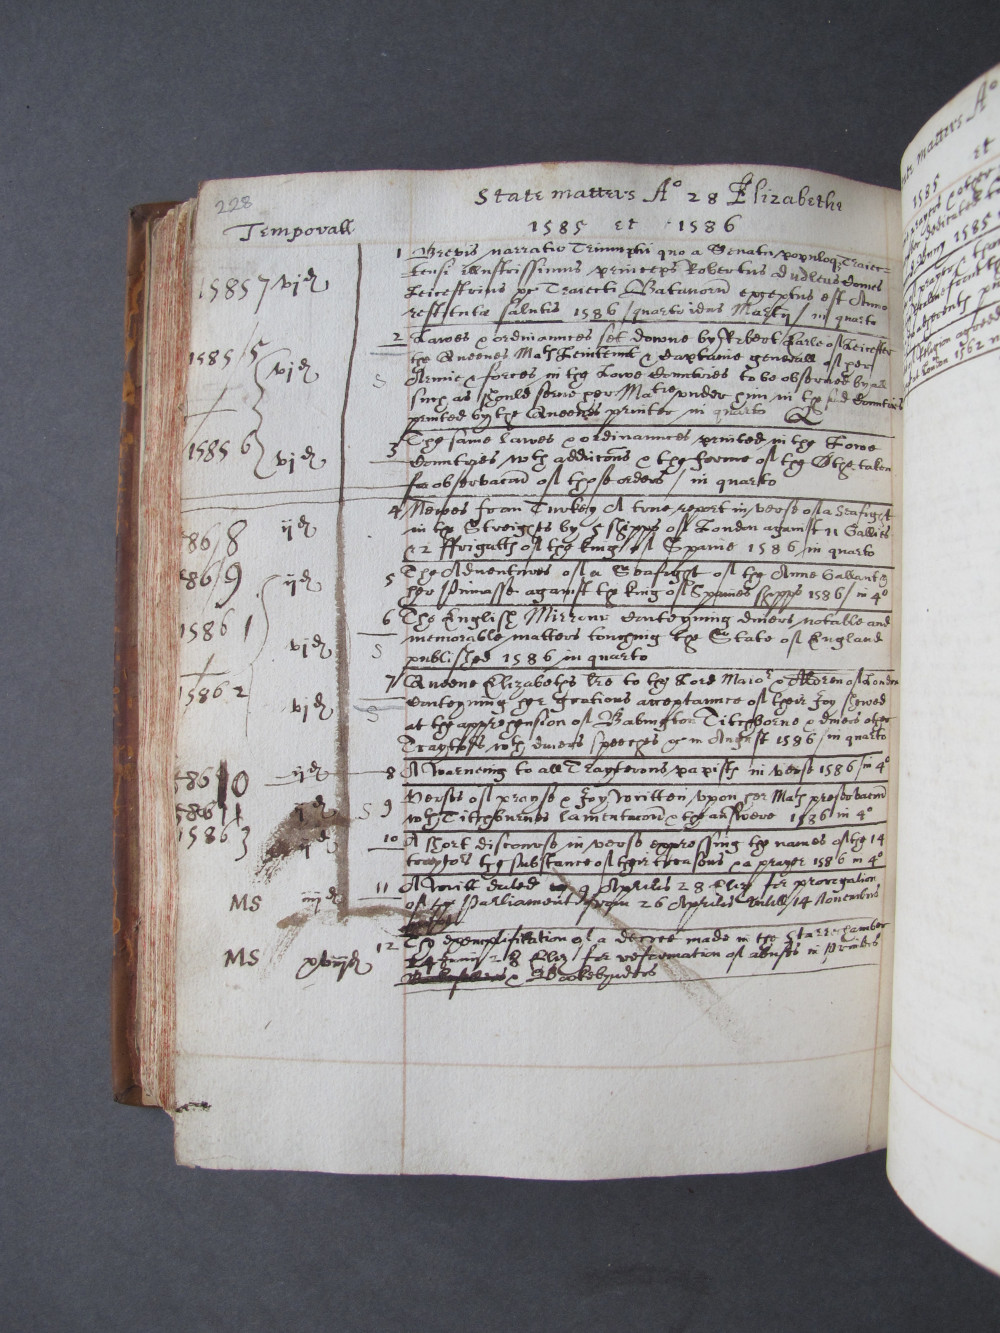 228
State matters Ao 28 Elizabethe
Temporall
1585 et 1586
1585 7 vjd
1 Brevis narratio Triumphi quo a Senatu populoq; Traiec=
tensi illustrissimus princeps Robertus Dudleus Comes
Leicestrius Traiecti Batavorum exceptus est Anno
restitutæ salutis 1586 / quarto idus Martij / in quarto
1585 / 5 vjd
2 Lawes & ordinannces set downe by Robert Earle of Leicester
the Queenes Mats Leiutennt & Captaine generall of her
S Armie & forces in the Lowe Countries to be observed by all
such as should serve her Matie under him in the said Countries
printed by the Queenes printer in quarto
1585 6 vjd
3 The same Lawes & ordinannces printed in the Lowe
Countryes wth addicons & the forme of the Othe taken
for observacon of those orders / in quarto
86 / 8 ijd
4 Newes from Turkey A true report in verse of a Seafight
in the Streights by 5 shipps of London against 11 Gallies
& 2 ffrigatts of the king of Spaine 1586 / in quarto
86 / 9 ijd
5 The Adventures of a Seafight of the Anne Gallant &
her Pinnasse against the king of Spaines shipps 1586 / in 4o
1586 1 vjd
6 The English Mirrour conteyning divers notable and
S memorable matters touching the State of England
published 1586 in quarto
1586 2 vjd
7 Queene Elizabeths lre to the Lord Maior & Alderen of London
S conteyning her gratious acceptance of their Joy shewed
at the apprehension of Babington Titchborne & divers other
Traytors wth divers speeches & in August 1586 / in quarto
86 10 ijd
8 A warneing to all Trayterous papists in verse 1586 / in 4o
1586 11 ijd
S 9 Verses of prayse & Joy Written upon her Mats preservacon
wth Titchburnes lamentacon & the answere 1586 in 4o
1586 3
10 A short discourse in verse expressing the names of the 14
traytors the substance of their treasons & a prayer 1586 in 4o
MS iiijd
11 A Writt dated 9 Aprilis 28 Eliz for prorogation
of the Parliament from 26 Aprilis untill 14 Novembris
MS xviijd
12 The exemplification of a decree made in the Starrechamber
Junij 28 Eliz for reformation of abuses in Printers
& Bookebynders